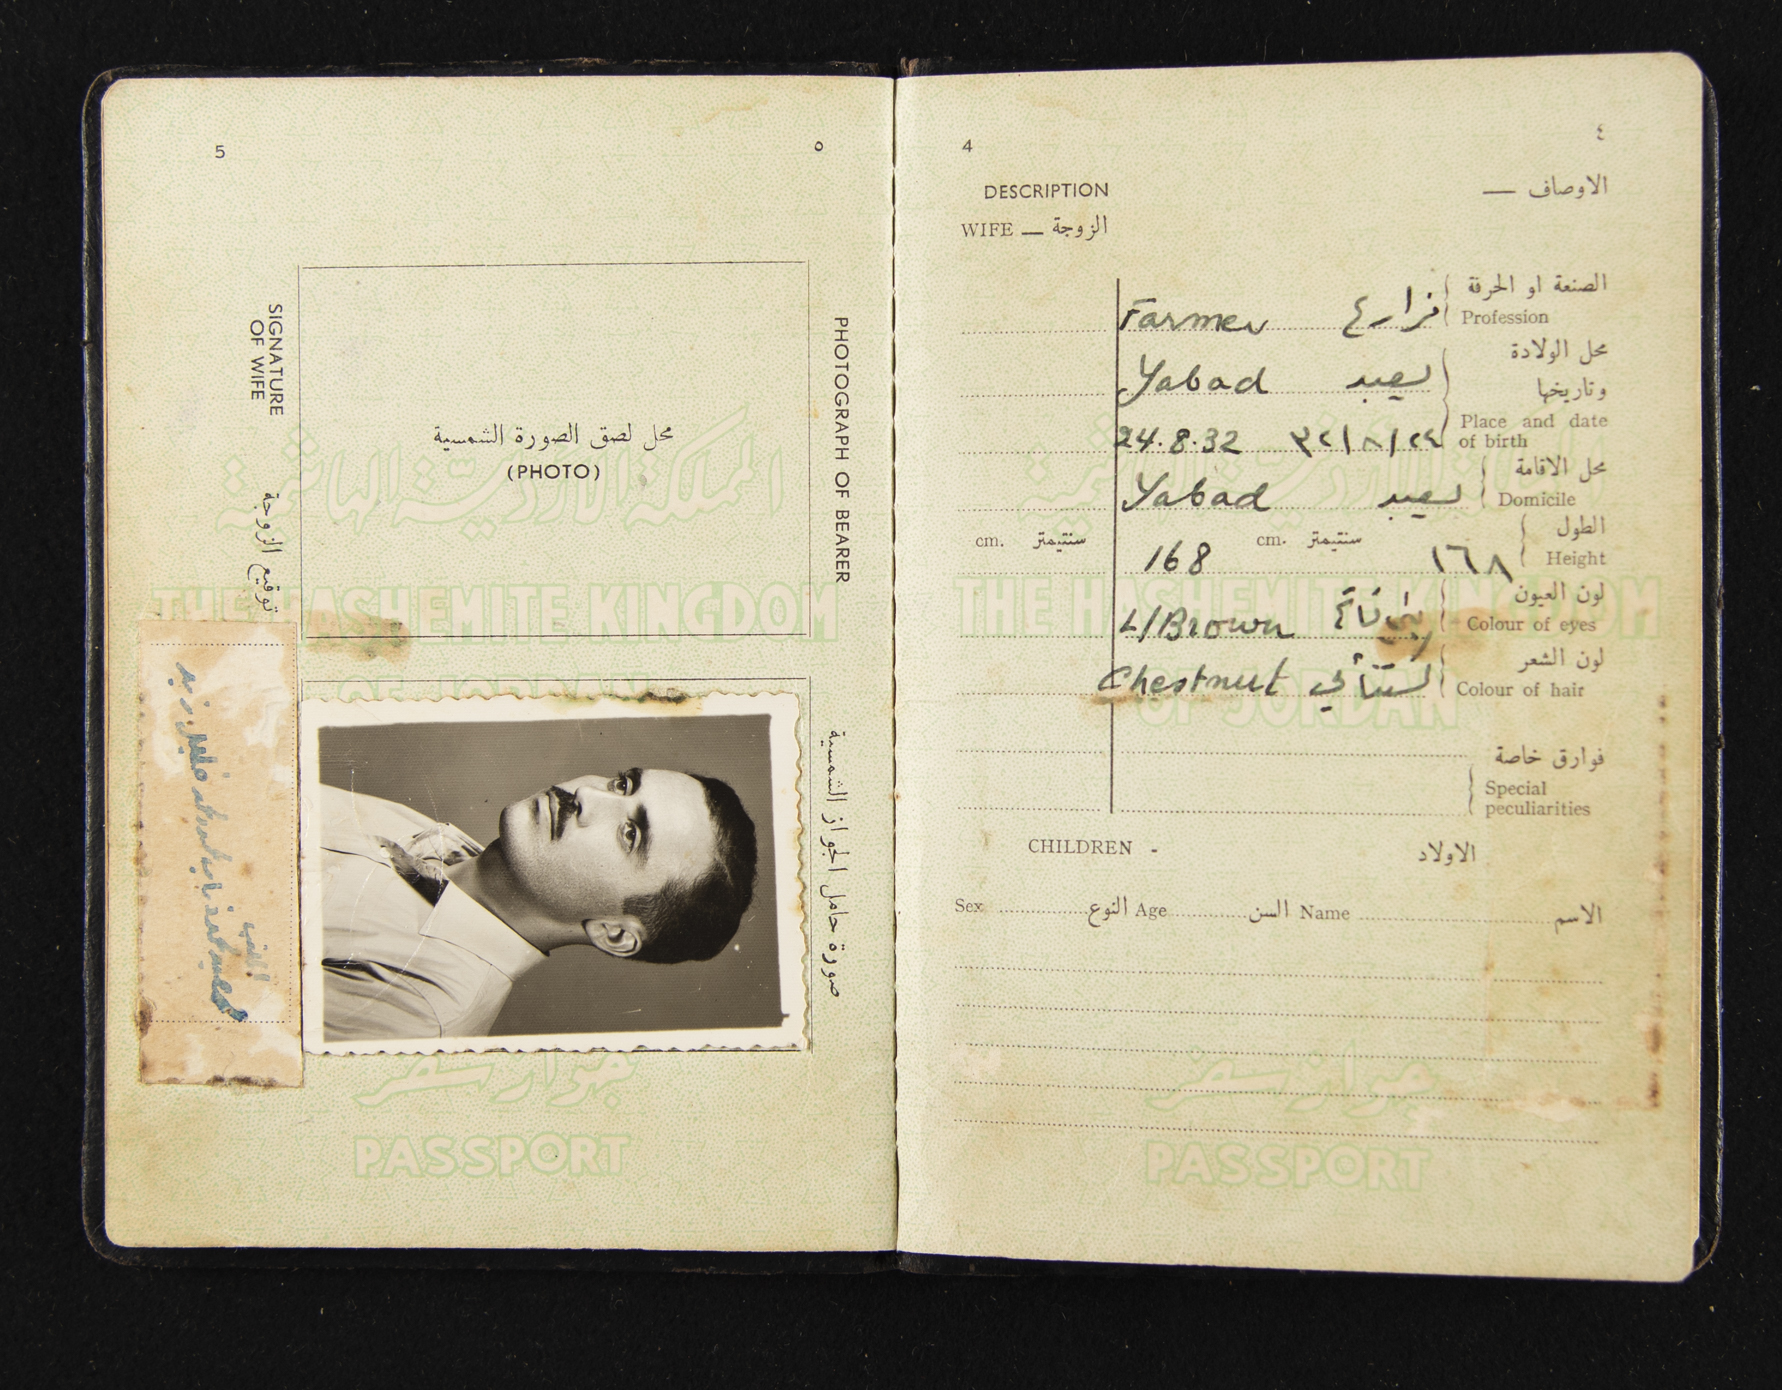 5 ٥
محل لصق الصورة الشمسية
(PHOTO)
SIGNATURE
OF WIFE
توقيع الزوجة
PHOTOGRAPH OF BEARER
صورة حامل الجواز الشمسية
المملكة الأردنية الهاشمية
THE HASHEMITE KINGDOM
OF JORDAN
جواز سفر
PASSPORT
4 ٤
DESCRIPTION الاوصاف —
WIFE — الزوجة
الصنعة او الحرفة
Farmer مزارع Profession
محل الولادة
Yabad يعبد وتاريخها
Place and date
24.8.32 ٣٢/٨/٢٤ of birth
محل الاقامة
Yabad يعبد Domicile
cm. سنتيمتر cm. سنتيمتر الطول
168 ١٦٨ Height
لون العيون
L/Brown بني فاتح Colour of eyes
لون الشعر
Chestnut كستنائي Colour of hair
فوارق خاصة
Special
peculiarities
CHILDREN - الاولاد
Sex النوع Age السن Name الاسم
THE HASHEMITE KINGDOM
OF JORDAN
جواز سفر
PASSPORT